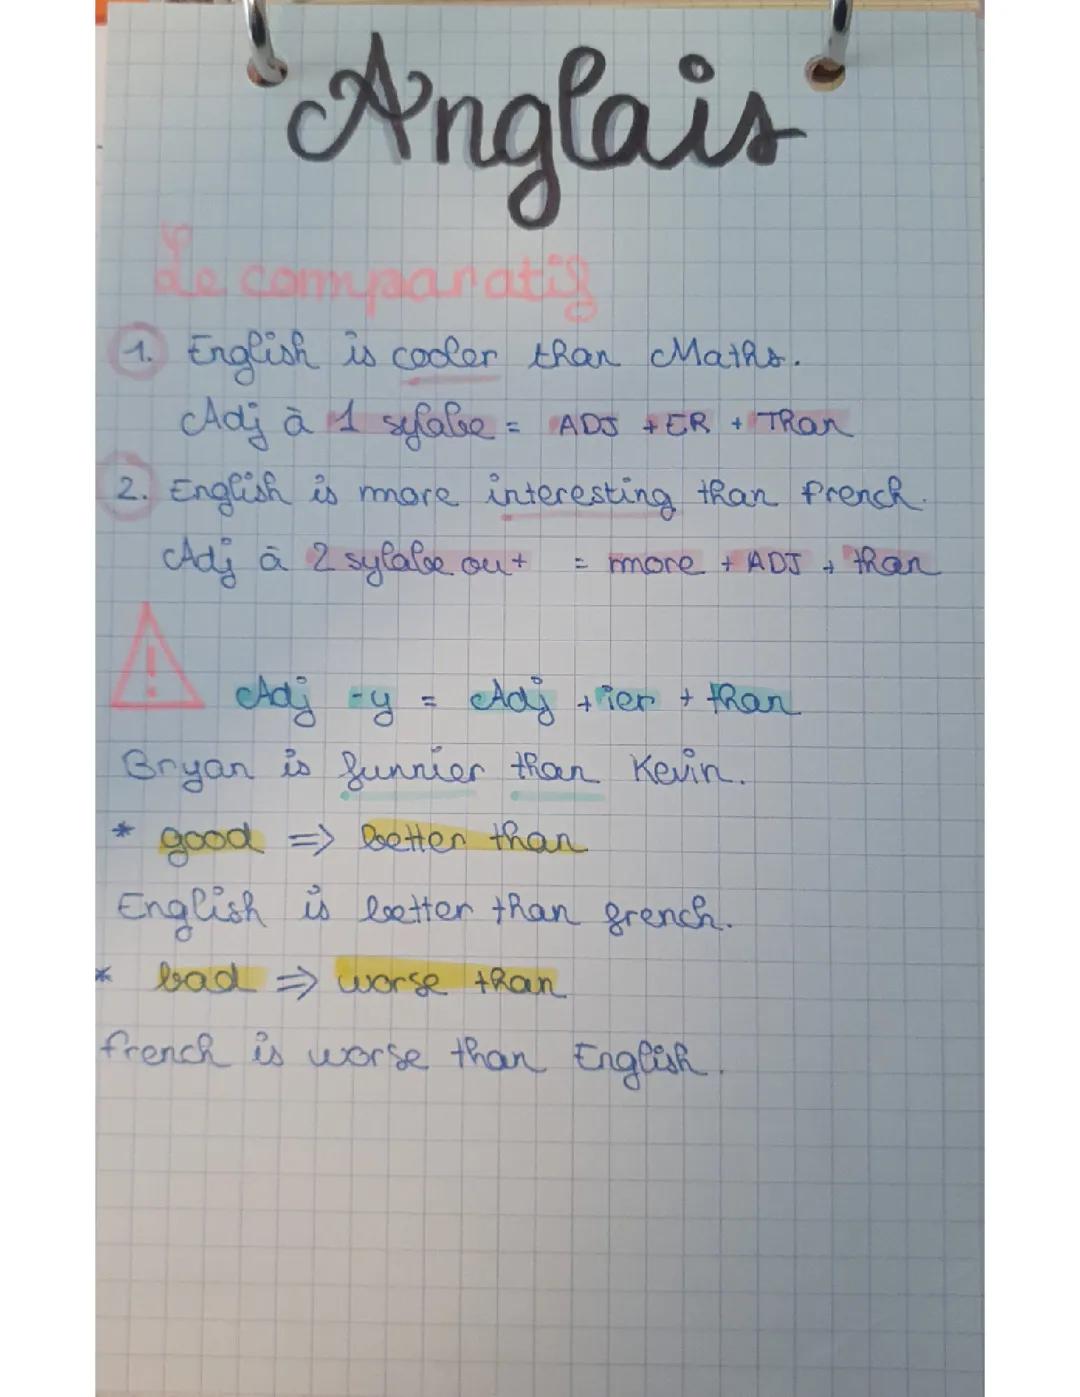 Anglais
Le comparatif
1. English is cooler than Maths.
Adj à 1 sylabe = ADJ + ER + Than
2. English is more interesting than french.
Adj à 2 sylabe ou + = more + ADJ + than
! Adj -y = Adj + ier + than
Bryan is funnier than Kevin.
* good => better than
English is better than french.
* bad => worse than
french is worse than English.